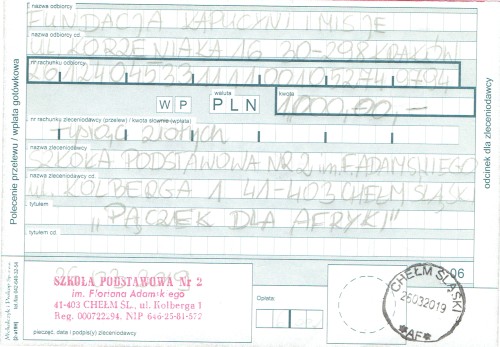 nazwa odbiorcy
FUNDACJA KAPUCYNI I MISJE
nazwa odbiorcy cd.
UL. KORZENIAKA 16 30-298 KRAKÓW
nr rachunku odbiorcy
26 1240 4533 1111 0010 5274 0794
waluta kwota
W P PLN 1000,00,-
nr rachunku zleceniodawcy (przelew) / kwota słownie (wpłata)
tysiąc złotych
nazwa zleceniodawcy
SZKOŁA PODSTAWOWA NR 2 im. F. ADAMSKIEGO
nazwa zleceniodawcy cd.
ul. KOLBERGA 1 41-403 CHEŁM ŚLĄSKI
tytułem
„PĄCZEK DLA AFRYKI"
tytułem cd.
06
SZKOŁA PODSTAWOWA Nr 2
im. Floriana Adamskiego
41-403 CHEŁM ŚL., ul. Kolberga 1
Reg. 000722294. NIP 646-25-81-572
pieczęć, data i podpis(y) zleceniodawcy
Opłata:
CHEŁM ŚLĄSKI
25032019
*AF*
Polecenie przelewu / wpłata gotówkowa
odcinek dla zleceniodawcy